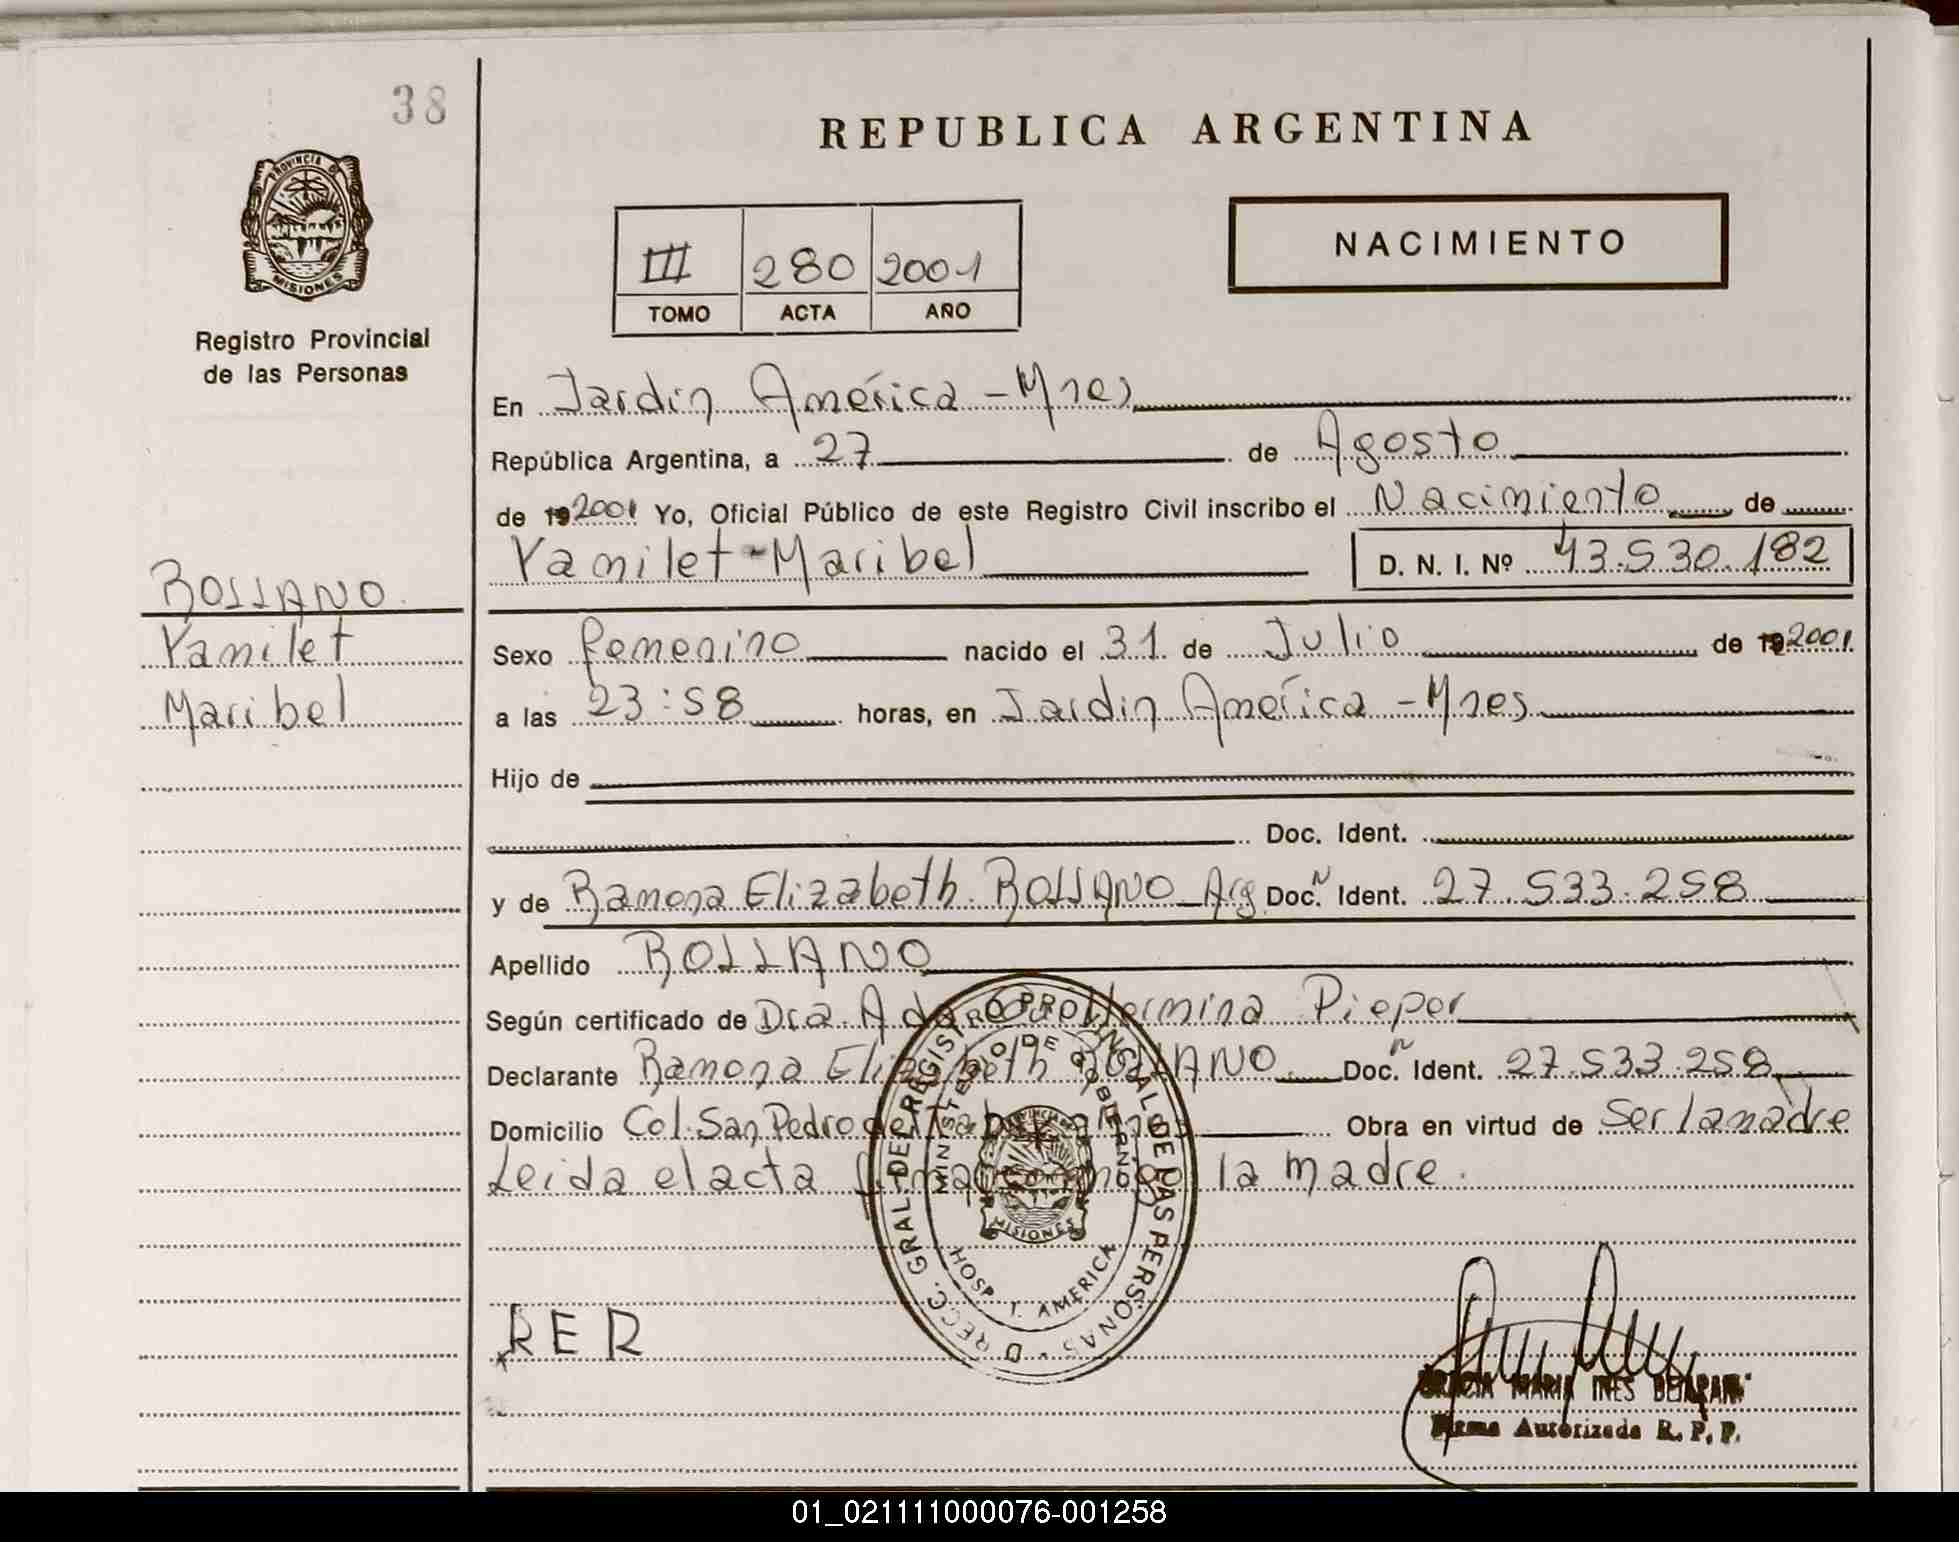 38
REPUBLICA ARGENTINA
PROVINCIA DE
MISIONES
Registro Provincial
de las Personas
III 280 2001
TOMO ACTA AÑO
NACIMIENTO
En Jardin América - Mnes
República Argentina, a 27 de Agosto
de 19 2001 Yo, Oficial Público de este Registro Civil inscribo el Nacimiento de
Yamilet - Maribel D. N. I. Nº 43.530.182
ROSSANO
Yamilet
Maribel
Sexo femenino nacido el 31 de Julio de 19 2001
a las 23:58 horas, en Jardin América - Mnes
Hijo de
Doc. Ident.
y de Ramona Elizabeth ROSSANO Arg Doc. N Ident. 27.533.258
Apellido ROSSANO
Según certificado de Dra. Hermina Pieper
Declarante Ramona Elizabeth ROSSANO Doc. N Ident. 27.533.258
Domicilio Col. San Pedro Obra en virtud de Ser la madre
Leida el acta la madre.
DIRECC. GRAL. DEL REGISTRO PROVINCIAL DE LAS PERSONAS
MINISTERIO DE GOBIERNO
MISIONES
HOSP. J. AMERICA
RER
MARIA INES
Firma Autorizada R. P. P.
01_021111000076-001258